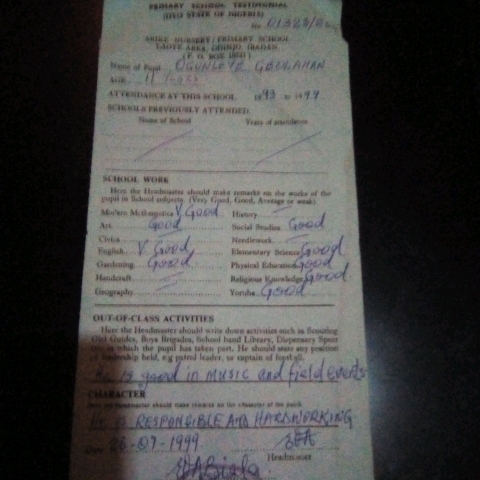 PRIMARY SCHOOL TESTIMONIAL
(OYO STATE OF NIGERIA)
No 01328/
NURSERY/PRIMARY SCHOOL
AREA, ODINJO, IBADAN.
(P. O. BOX
Name of Pupil OGUNLEYE GBOLAHAN
AGE 11 Years
ATTENDANCE AT THIS SCHOOL 1993 to 1999
SCHOOLS PREVIOUSLY ATTENDED
Name of School Years of attendance
SCHOOL WORK
Here the Headmaster should make remarks on the works of the
pupil in School subjects. (Very Good, Good, Average or weak).
Modern Mathematics V. Good History
Art Good Social Studies Good
Civics Needlework
English V. Good Elementary Science Good
Gardening Good Physical Education Good
Handcraft Religious Knowledge Good
Geography Yoruba Good
OUT-OF-CLASS ACTIVITIES
Here the Headmaster should write down activities such as Scouting
Girl Guides, Boys Brigades, School band Library, Dispensary Sport
etc. in which the pupil has taken part. He should state any position
of leadership held, e.g patrol leader, or captain of football.
He is good in music and field events
CHARACTER
Here the Headmaster should make remarks on the character of the pupil
HE IS RESPONSIBLE AND HARDWORKING
Date 26-07-1999
Headmaster